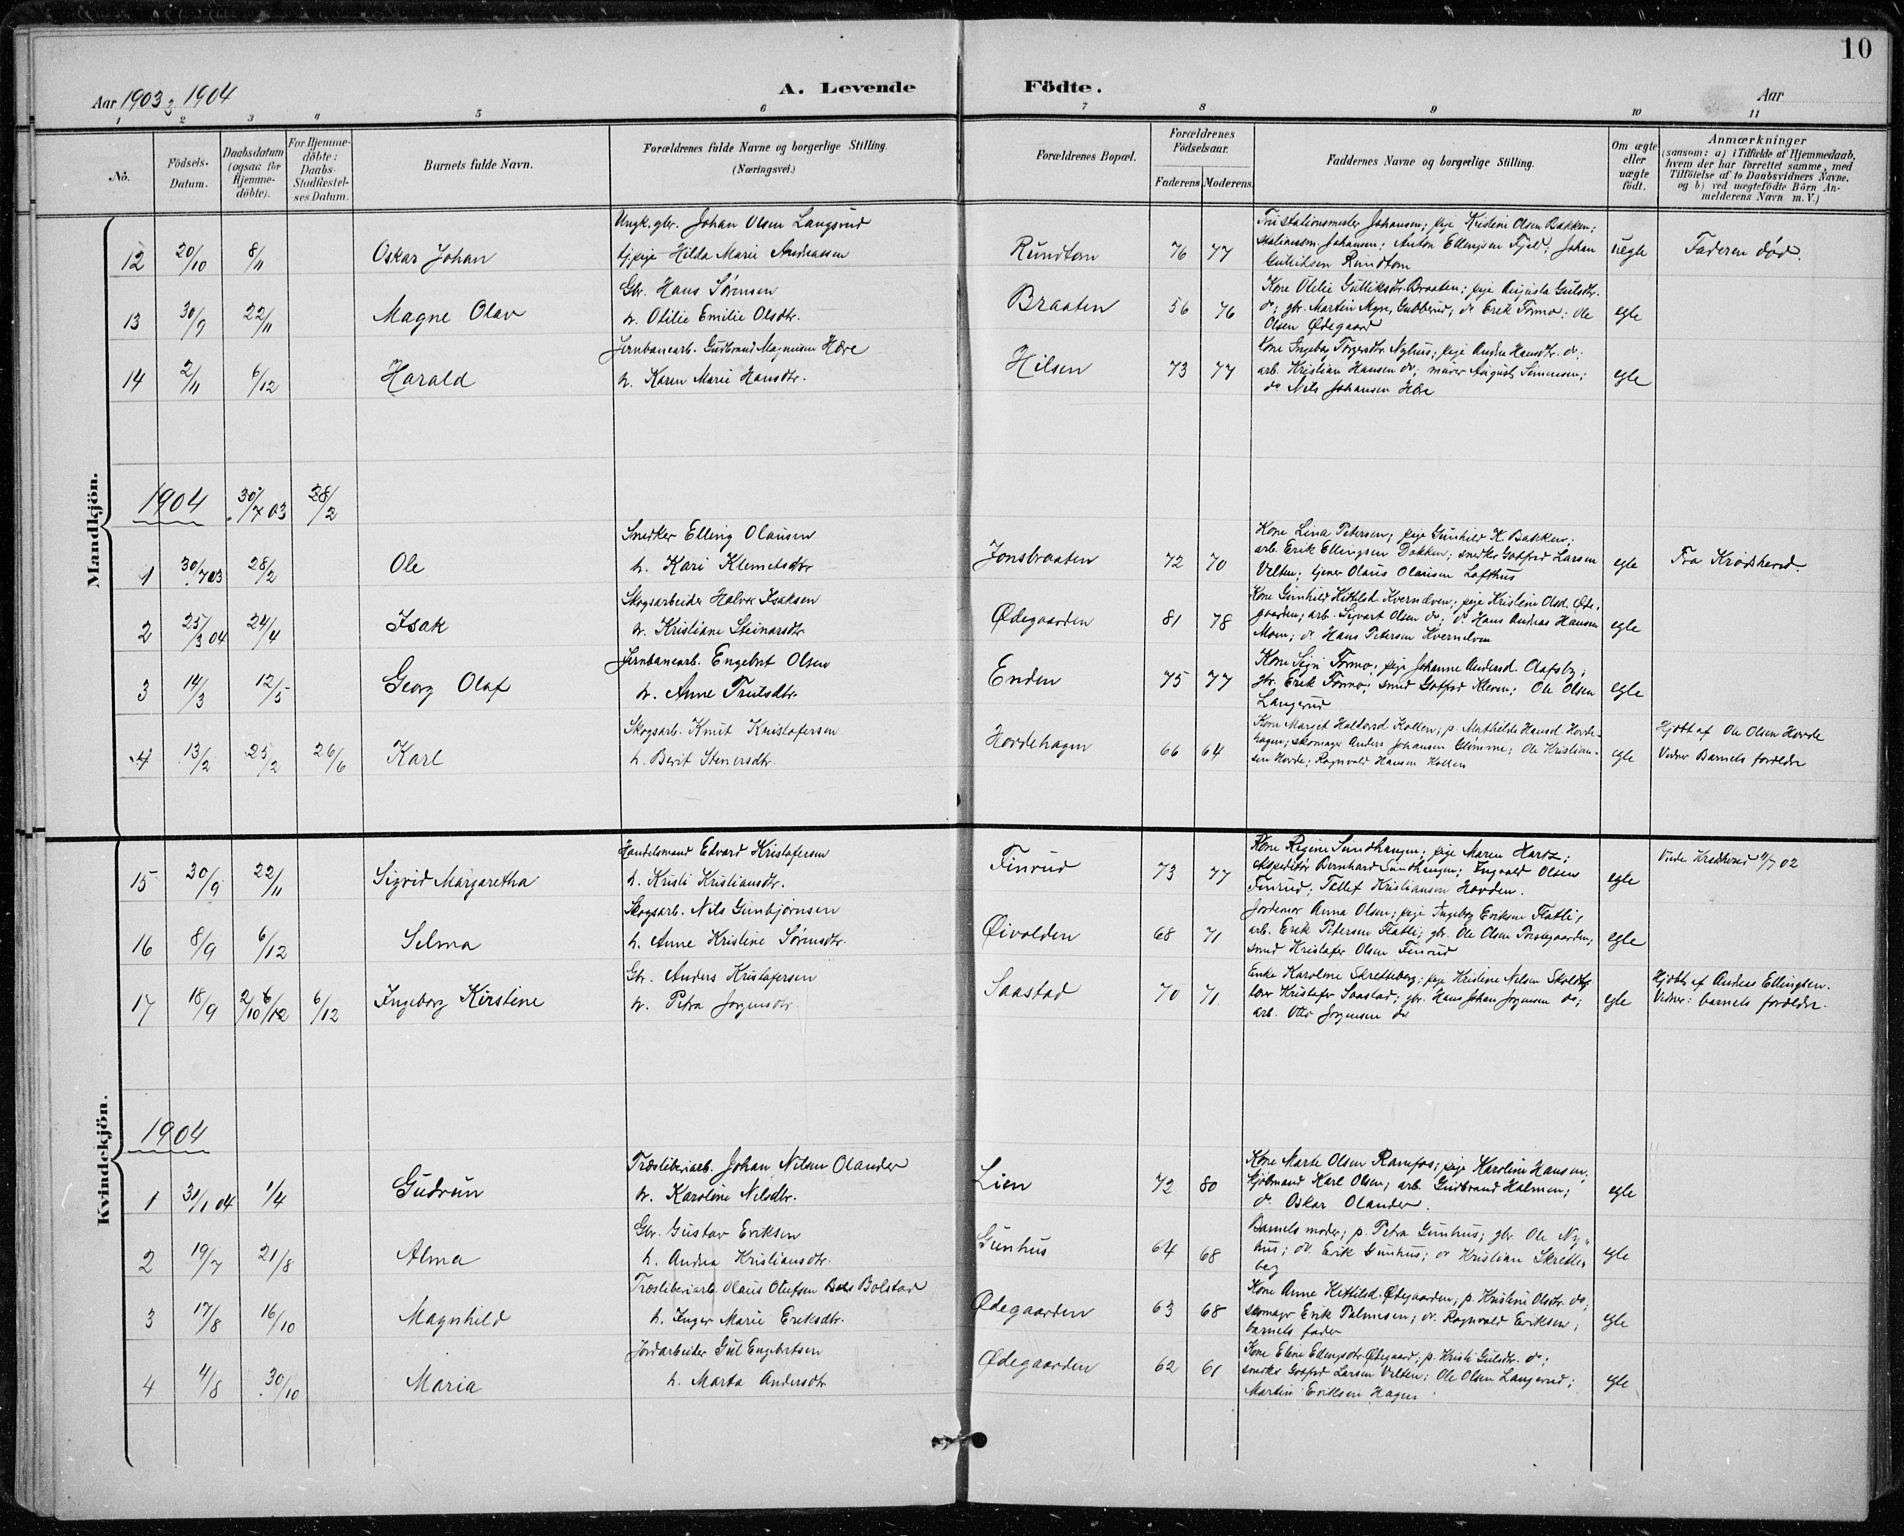 10
Aar 1903 & 1904
A. Levende Födte.
Aar
1 2 3 4 5 6 7 8 9 10 11
No.
Födsels-Datum.
Daabsdatum (ogsaa for Hjemme-döbte).
For Hjemme-döbte: Daabs-Stadfæstel-ses Datum.
Barnets fulde Navn.
Forældrenes fulde Navne og borgerlige Stilling. (Næringsvei.)
Forældrenes Bopæl.
Forældrenes Födselsaar.
Faderens Moderens
Faddernes Navne og borgerlige Stilling.
Om ægte eller uægte födt.
Anmærkninger
(saasom: a) i Tilfælde af Hjemmedaab, hvem der har forrettet samme, med Tilföielse af to Daabsvidners Navne. og b) ved uægtefödte Börn An-melderens Navn m. V.)
Mandkjön.
Ungk. gbr. Johan Olsen Langsrud
12 20/10 8/11 Oskar Johan
pige Hilda Marie Andreassen
Rundtom 76 77
Johansen; pige Kristine Olsen Bakken;
Johansen; Anton Ellingsen Fjeld; Johan
Gulliksen Rundtom
uegte Faderen død.
Gbr. Hans Sørensen
13 30/9 22/11 Magne Olav
h. Otilie Emilie Olsdtr.
Braaten 56 76
Kone Otilie Gulliksdtr. Braaten; pige Augusta Gulsdtr.
do; gbr. Martin Myre, Gubberud; do Erik Formo; Ole
Olsen Ødegaard
egte
Jernbanearb. Gudbrand Magnusen Høre
14 2/11 6/12 Harald
h. Karen Marie Hansdtr.
Hilsen 73 77
Kone Ingeborg Torgersdtr. Nyhus; pige Andrea Hansdtr. do;
arb. Kristian Hansen do; murer August Simensen;
do Nils Johansen Høre
egte
1904 30/7 03 28/2
Snedker Elling Olausen
1 30/7 03 28/2 Ole
h. Kari Klemetsdtr
Jonsbraaten 72 70
Kone Lina Petersen; pige Gunhild K. Bakken;
arb. Erik Ellingsen Dokken; snedker Gotfred Larsen
Velten; tjener Olaus Olausen Lofthus
egte Fra Krødsherred.
Skogsarbeider Halvor Isaksen
2 25/3 04 24/4 Isak
h. Kristiane Steinarsdtr
Ødegaarden 81 78
Kone Gunhild Kittilsd. Kvernelven; pige Kristine Olsd. Øde-
gaarden; arb. Sigvart Olsen do; do Hans Andreas Hansen
Moen; do Hans Petersen Kvernelven
egte
Jernbanearb. Engebret Olsen
3 14/3 12/5 Georg Olaf
h. Anne Trulsdtr.
Enden 75 77
Kone Sigri Formo; pige Johanne Andersd. Olafsby;
gbr. Erik Formo; smed Gotfred Kleven; Ole Olsen
Langerud
egte
Skogsarb. Knut Kristofersen
4 13/2 25/2 26/6 Karl
h. Berit Stenersdtr.
Hovdehagen 66 64
Kone Marget Haldorsd. Kolken; p. Mathilde Hansd. Hovde-
hagen; skomager Anders Johansen Glømme; Ole Kristian-
sen Hovde; Ragnvald Hansen
egte
Hjdøbt af Ole Olsen Hovde
Vidner Barnets forældre
Kvindekjön.
Handelsmand Edvard Kristofersen
15 30/9 22/11 Sigrid Margaretha
h. Kristi Kristiansdtr.
Finrud 73 77
Kone Regine Sundhaugen; pige Maren Hartz;
ekspeditør Bernhard Sundhaugen; Ingvald Olsen
Finrud; Tellef Kristiansen Hovden.
egte
Viede Krødsherred 11/7 02
Skogsarb. Nils Gunbjørnsen
16 8/9 6/12 Selma
h. Anne Kristine Sørensdtr.
Øivolden 68 71
Jordemor Anna Olsen; pige Ingeborg Eriksen Flatli;
arb. Erik Petersen Flatli; gbr. Ole Olsen
smed Kristofer Olsen Finrud
egte
Gbr. Anders Kristofersen
17 18/9 2/10 6/12 6/12 Ingeborg Kirstine
h. Petra Jørgensdtr.
Saastad 70 71
Enke Karoline Skretteberg; pige Kristine Nilsen
Kristofer Saastad; gbr. Hans Johan Jørgensen do;
arb. Otto Jørgensen do
egte
Hjdøbt af Anders Ellingsen.
Vidner: barnets forældre.
1904
Træsliberiarb. Johan Nilsen Olander
1 31/1 04 1/4 Gudrun
h. Karoline Nilsdtr.
Lien 72 80
Kone Marte Olsen Ramfos; pige Karoline Hansen;
kjøbmand Karl Olsen; arb. Gudbrand Holmen;
do Oskar Olander.
egte
Gbr. Gustav Eriksen
2 19/7 21/8 Alma
h. Andrea Kristiansdtr.
Gunhus 64 68
Barnets moder; p. Petra Gunhus; gbr. Ole Ny-
hus; do Erik Gunhus; do Kristian Skrette-
berg
egte
Træsliberiarb. Olaus Olufsen Bolstad
3 17/8 16/10 Magnhild
h. Inger Marie Eriksdtr.
Ødegaarden 63 68
Kone Anne Kittilsd. Ødegaarden; p. Kristine Olsdtr. do;
skomager Erik Palmesen; do Ragnvald Eriksen;
barnets fader
egte
Jordarbeider Gul Engebretsen
4 4/8 30/10 Maria
h. Marta Andersdtr
Ødegaarden 62 61
Kone Eline Edingsdtr. Ødegaard; p. Kristi Gulsdtr. do;
snedker Gotfred Larsen Velten; Ole Olsen Langerud;
Martin Eriksen Hagen
egte